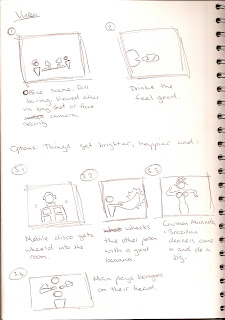 Video
1
2
Office scene. Dull
boring. Viewed after
via big shot of face
camera
security
Drinks the
feel good.
Options: Things get brighter, happier and:
3.1
3.2
3.3
Mobile disco gets
wheeled into the
room.
whacks
the other person
with a giant
banana.
Carmen Miranda
+ Brazilian
dancers come
in and do a
jig.
3.4
Man plays bongos
on their head.